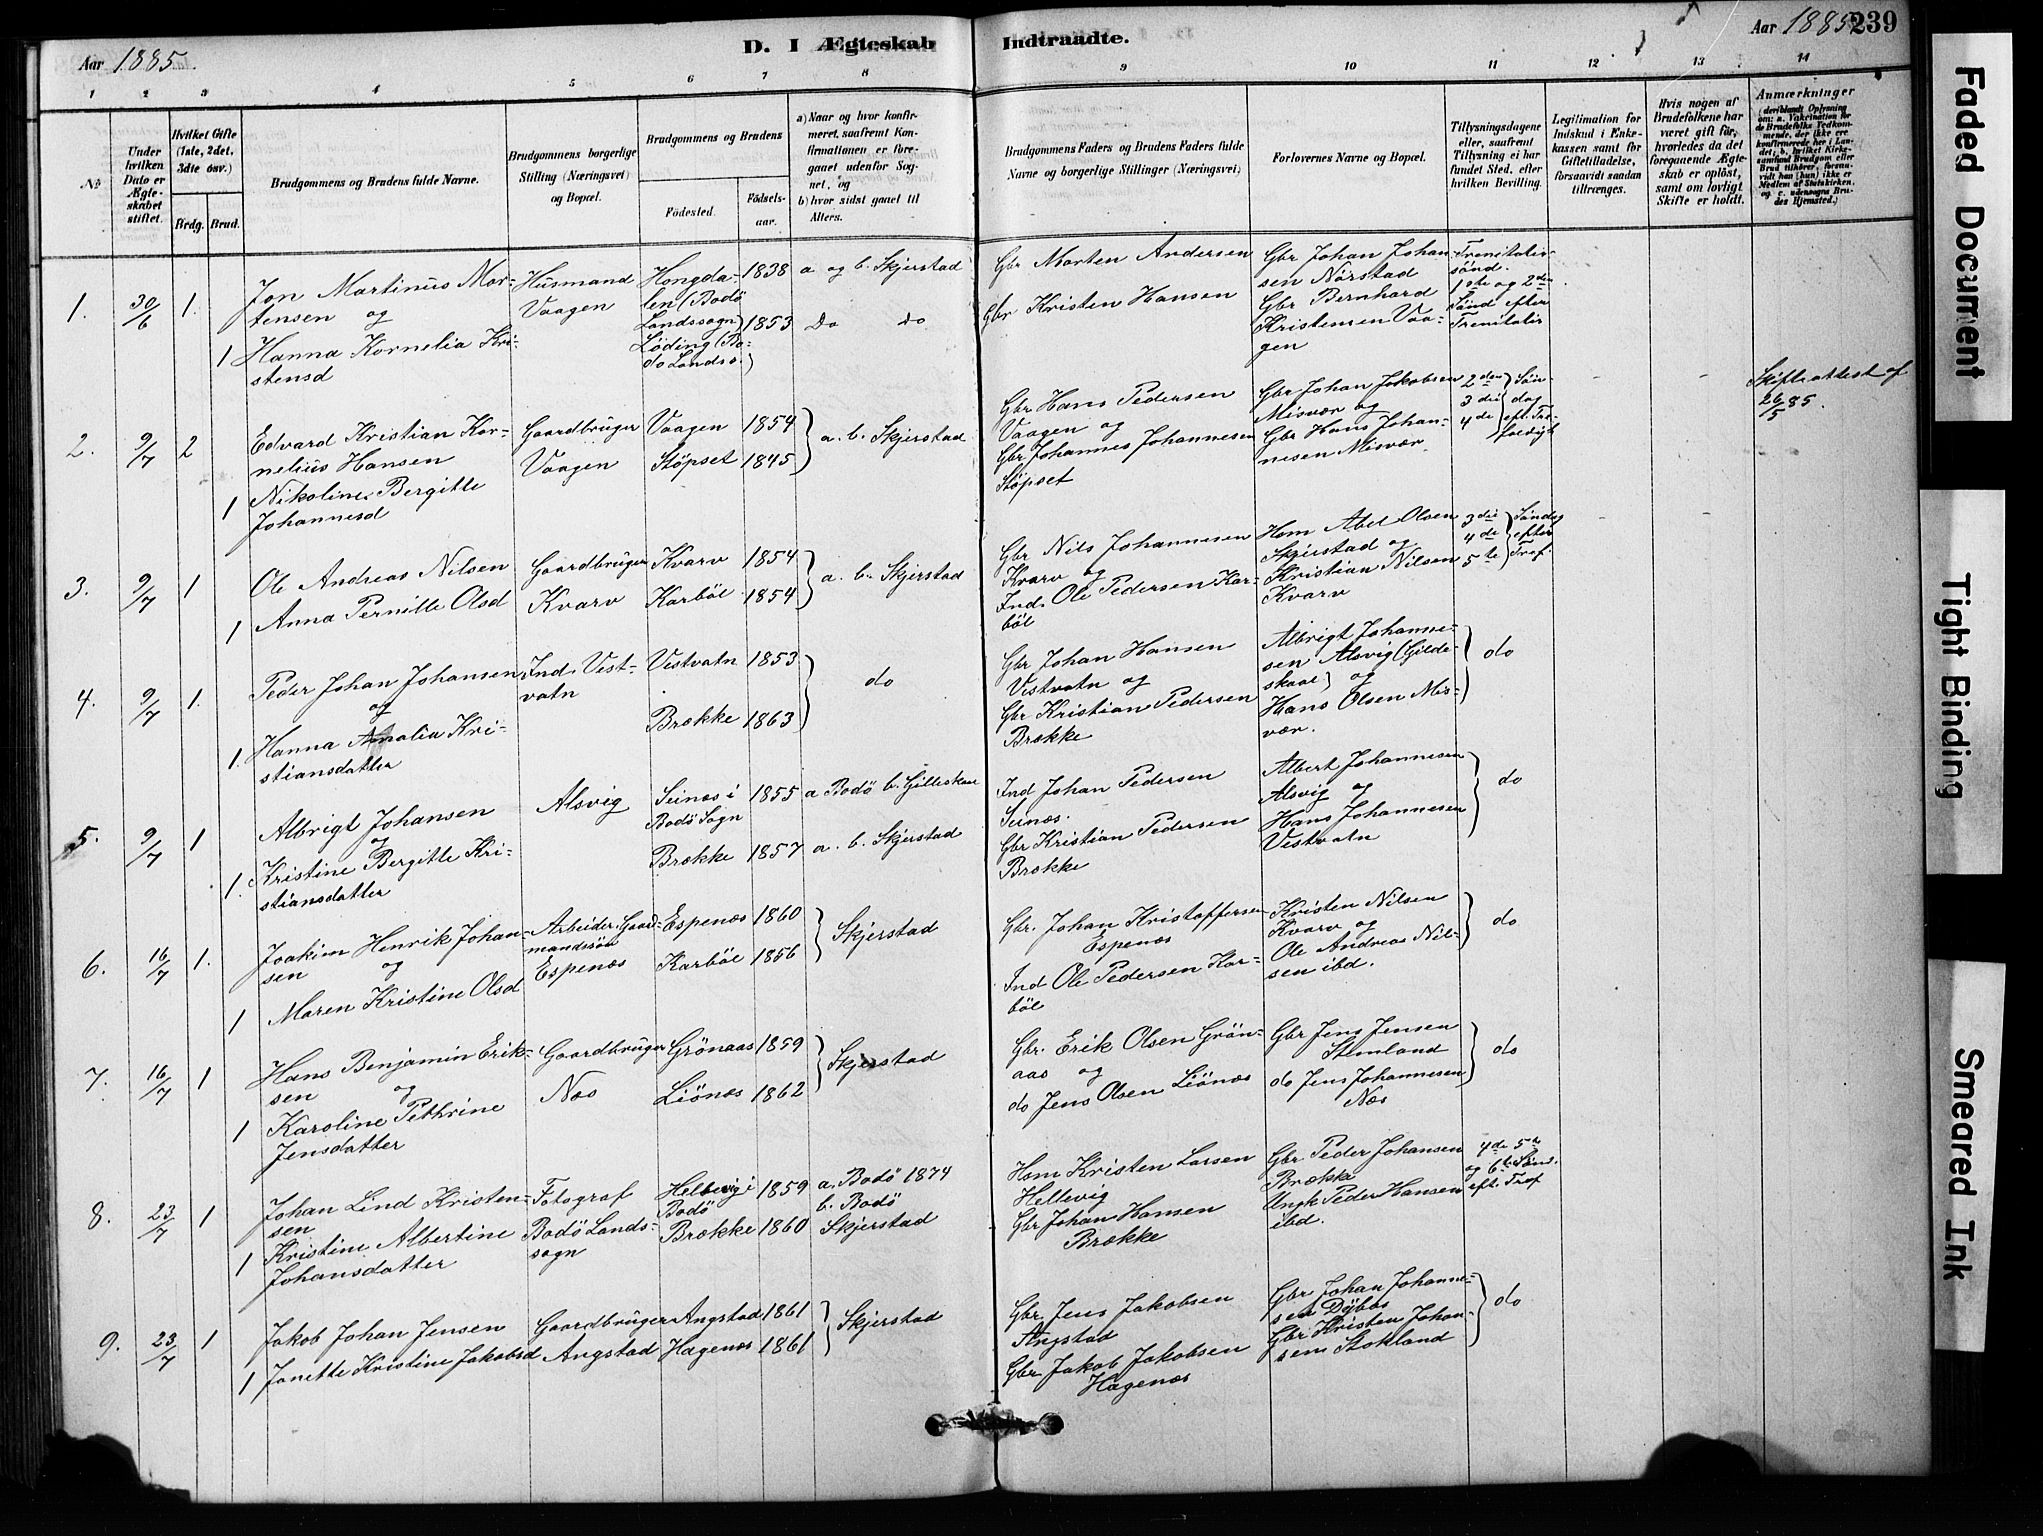 Aar 1885.
D. I Ægteskab Indtraadte.
Aar 1885.
239
1 2 3 4 5 6 7 8 9 10 11 12 13 14
No
Under hvilken Dato er Ægteskabet stiftet.
Hvilket Gifte (1ste, 2det, 3die osv.)
Brdg. Brud.
Brudgommens og Brudens fulde Navne.
Brudgommens borgerlige Stilling (Næringsvei) og Bopæl.
Brudgommens og Brudens
Fødested.
Fødselsaar.
a) Naar og hvor konfirmeret, saafremt Konfirmationen er foregaaet udenfor Sognet, og
b) hvor sidst gaaet til Alters.
Brudgommens Faders og Brudens Faders fulde Navne og borgerlige Stillinger (Næringsvei)
Forlovernes Navne og Bopæl.
Tillysningsdagene eller, saafremt Tillysning ei har fundet Sted, efter hvilken Bevilling.
Legitimation for Indskud i Enkekassen samt for Giftetilladelse, forsaavidt saadan tiltrænges.
Hvis nogen af Brudefolkene har været gift før, hvorledes da det foregaaende Ægteskab er opløst, samt om lovligt Skifte er holdt.
Anmærkninger (deriblandt Oplysning om: a. Vakcination for de Brudefolks Vedkommende, der ikke ere konfirmerede her i Landet; b. hvilket Kirkesamfund Brudgom eller Brud tilhører, forsaavidt han (hun) ikke er Medlem af Statskirken, og c. udensogns Brudes Hjemsted.)
1. 30/6 1.
Jon Martinus Mortensen og
1 Hanna Kornelia Kristensd
Husmand Vaagen
Hongdalen (Bodö Landssogn) 1838
Löding (Bodö Landss.) 1853
a og b. Skjerstad
Do do
Gbr Morten Andersen
Gbr Kristen Hansen
Gbr Johan Johansen Nörstad
Gbr Bernhard Kristensen Vaagen
Trenitatissönd.
1ste og 2den Sönd efter Trenitatis
2. 9/7 2
Edvard Kristian Kornelius Hansen
1 Nikoline Bergitte Johannesd
Gaardbruger Vaagen
Vaagen 1854
Stöpset 1845
a. b. Skjerstad
Gbr Hans Pedersen Vaagen og
Gbr Johannes Johannesen Stöpset
Gbr Johan Jakobsen Misvær og
Gbr Hans Johannesen Misvær
2den 3die 4de Söndag eft. Trefoldigh
Skifteattest af 26/5 85.
3. 9/7 1
Ole Andreas Nilsen
1 Anna Pernille Olsd
Gaardbruger Kvarv
Kvarv 1854
Karböl 1854
a. b. Skjerstad
Gbr Nils Johannesen Kvarv og
Ind. Ole Pedersen Karböl
Hsm Abel Olsen Skjerstad og
Kristian Nilsen Kvarv
3die 4de 5te Söndag efter Tref.
4. 9/7 1.
Peder Johan Johansen og
1. Hanna Amalia Kristiansdatter
Ind. Vestvatn
Vestvatn 1853
Brække 1863
do
Gbr Johan Hansen Vestvatn og
Gbr Kristian Pedersen Brække
Albrigt Johannesen Alsvig (Gildeskaal) og
Hans Olsen Misvær.
do
5. 9/7 1
Albrigt Johansen og
1. Kristine Bergitte Kristiansdatter
Alsvig
Seines i Bodö Sogn 1855
Brække 1857
a Bodö b. Gilleskaal
a. b. Skjerstad
Ind Johan Pedersen Seines.
Gbr Kristian Pedersen Brække
Albert Johannesen Alsvig og
Hans Johannesen Vestvatn
do
6. 16/7 1.
Joakim Henrik Johansen og
1 Maren Kristine Olsd
Arbeider. Gaardmandssön Espenæs
Espenæs 1860
Karböl 1856
Skjerstad
Gbr. Johan Kristoffersen Espenæs
Ind Ole Pedersen Karböl
Kristen Nilsen Kvarv og
Ole Andreas Nilsen ibd.
do
7. 16/7 1
Hans Benjamin Eriksen og
1 Karoline Pethrine Jensdatter
Gaardbruger Næs
Grönaas 1859
Liönes 1862
Skjerstad
Gbr. Erik Olsen Grönaas og
do Jens Olsen Liönæs
Gbr Jens Jensen Stemland
do Jens Johannesen Næs
do
8. 23/7 1
Johan Lind Kristensen
1 Kristine Albertine Johansdatter
Fotograf Bodö Landssogn
Hellevig i Bodö 1859
Brække 1860
a. Bodö 1874
b. Bodö
Skjerstad
Hsm Kristen Larsen Hellevig
Gbr Johan Hansen Brække
Gbr Peder Johansen Brække
Ungk Peder Hansen ibd.
4de 5te og 6te Sönd. eft. Tref
9. 23/7 1
Jakob Johan Jensen
1 Janette Kristine Jakobsd
Gaardbruger Angstad
Angstad 1861
Hagenæs 1861
Skjerstad
Gbr Jens Jakobsen Angstad
Gbr Jakob Jakobsen Hagenæs
Gbr Johan Johannesen Dybos
Gbr Kristen Johansen Stokland
do
Faded Document
Tight Binding
Smeared Ink